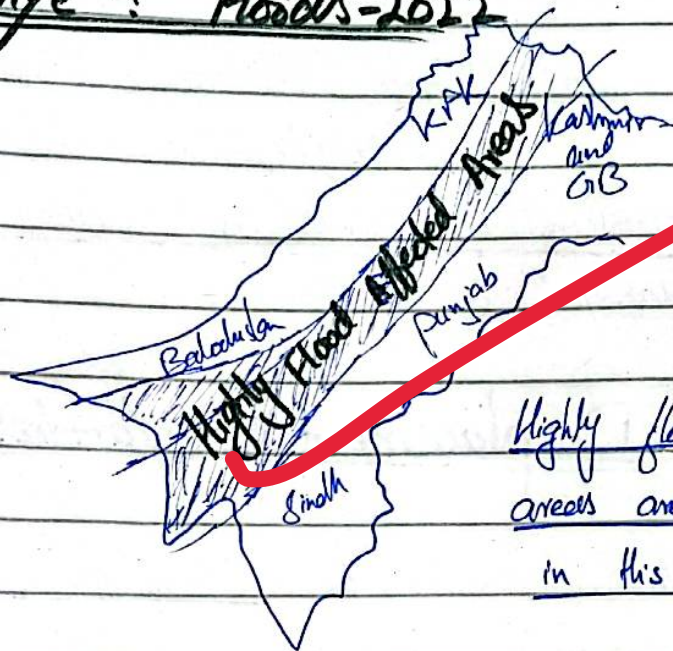 : Floods-2022
KPK
Kashmir
and
GB
Highly Flood Affected Areas
Punjab
Balochistan
Sindh
Highly
areas
in this